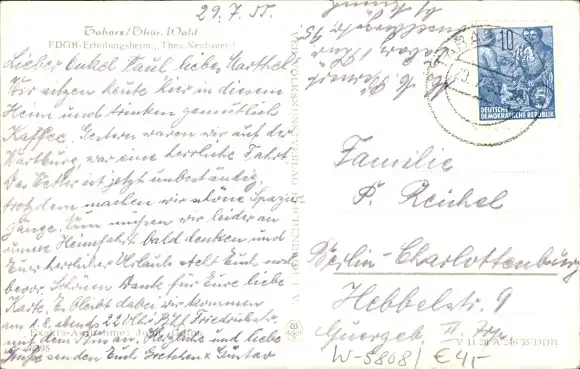 29.7.55.
Tabarz/Thür. Wald
FDGB-Erholungsheim „Theo Neubauer"
Lieber Onkel Paul, liebe Marthel
Wir sitzen heute hier in diesem
Heim und trinken gemütlich
Kaffee. Gestern waren wir auf der
Wartburg, war eine herrliche Fahrt
Das Wetter ist jetzt unbeständig,
trotzdem machen wir schöne Spazier-
gänge. Nun müssen wir leider an
unsere Heimfahrt bald denken und
Euer herrlicher Urlaub steht Euch noch
bevor. Schönen Dank für Eure liebe
Karte. Es bleibt dabei wir kommen
am 1.8. abends 22 Uhr Bhf Friedrichstr.
mit dem an. Herzliche und liebe
Grüße senden Euch Gretchen u. Gustav
10
DEUTSCHE
DEMOKRATISCHE REPUBLIK
Familie
P. Reichel
Berlin-Charlottenburg
Hebbelstr. 9
V 11-28 A 246 55 DDR
W-5808/ €4,-